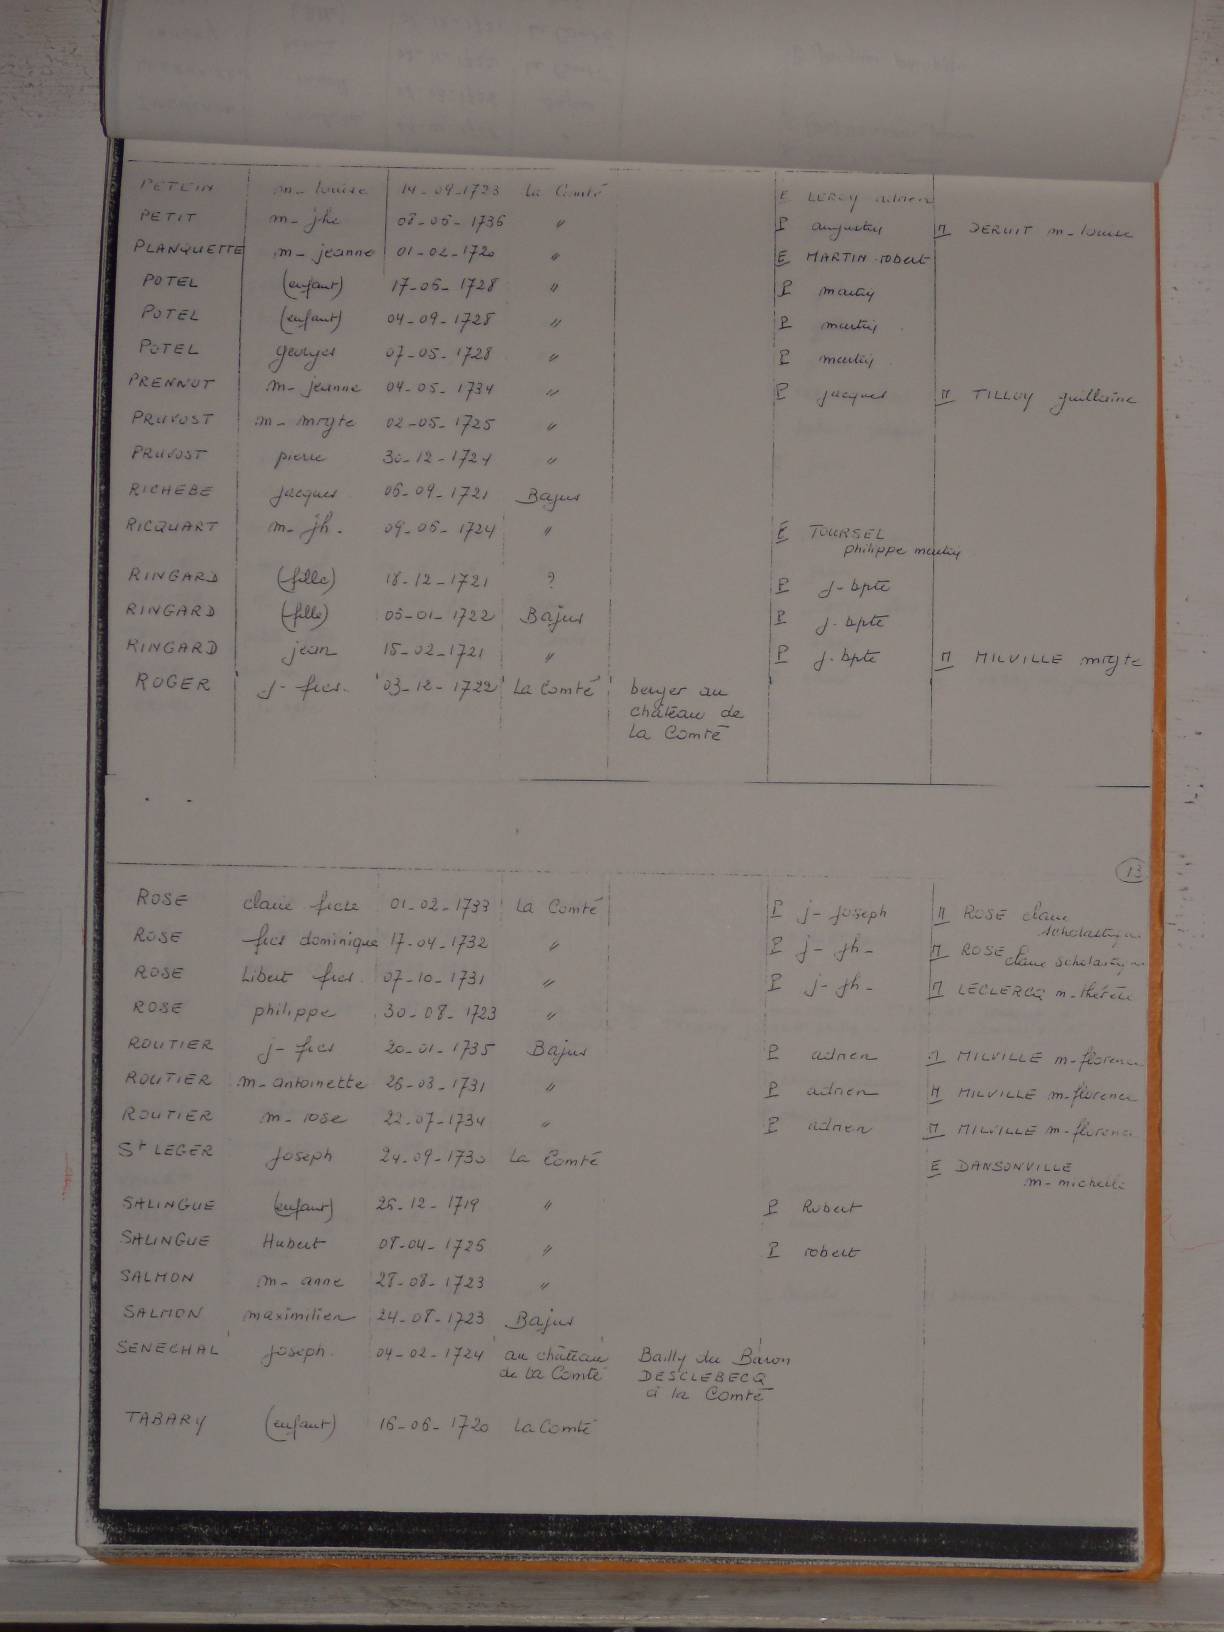 PETEIN m- louise 14-09-1723 La Comté E LEROY adrien
PETIT m- jhe 08-05-1736 " P augustin M DERUIT m-louise
PLANQUETTE m- jeanne 01-02-1720 " E MARTIN robert
POTEL (enfant) 17-06-1728 " P martin
POTEL (enfant) 04-09-1728 " P martin
POTEL georges 07-05-1728 " P martin
PRENNUT m- jeanne 04-05-1734 " P jacques M TILLOY guillaine
PRUVOST m- mrgte 02-05-1725 "
PRUVOST pierre 30-12-1724 "
RICHEBE jacques 06-09-1721 Bajus
RICQUART m- jh. 09-06-1724 " E TOURSEL
philippe martin
RINGARD (fille) 18-12-1721 ? P j-bpte
RINGARD (fille) 05-01-1722 Bajus P j-bpte
RINGARD jean 15-02-1721 " P j-bpte M MILVILLE mrgte
ROGER j- fcs. 03-12-1722 La Comté berger au
château de
la Comté
13
ROSE claire fcse 01-02-1733 La Comté P j-joseph M ROSE claire
scholastique
ROSE fcs dominique 17-04-1732 " P j-jh- M ROSE
claire scholastique
ROSE Libert fcs 07-10-1731 " P j-jh- M LECLERCQ m-thérèse
ROSE philippe 30-08-1723 "
ROUTIER j- fcs 20-01-1735 Bajus P adrien M MILVILLE m-florence
ROUTIER m-antoinette 26-03-1731 " P adrien M MILVILLE m-florence
ROUTIER m- rose 22-07-1734 " P adrien M MILVILLE m-florence
St LEGER joseph 24-09-1730 La Comté E DANSONVILLE
m-michelle
SALINGUE (enfant) 26-12-1719 " P Robert
SALINGUE Hubert 08-04-1726 " P robert
SALMON m- anne 28-08-1723 "
SALMON maximilien 24-08-1723 Bajus
SENECHAL joseph 04-02-1724 au château Bailly du Baron
de la Comté DESCLEBECQ
à la Comté
TABARY (enfant) 16-06-1720 La Comté